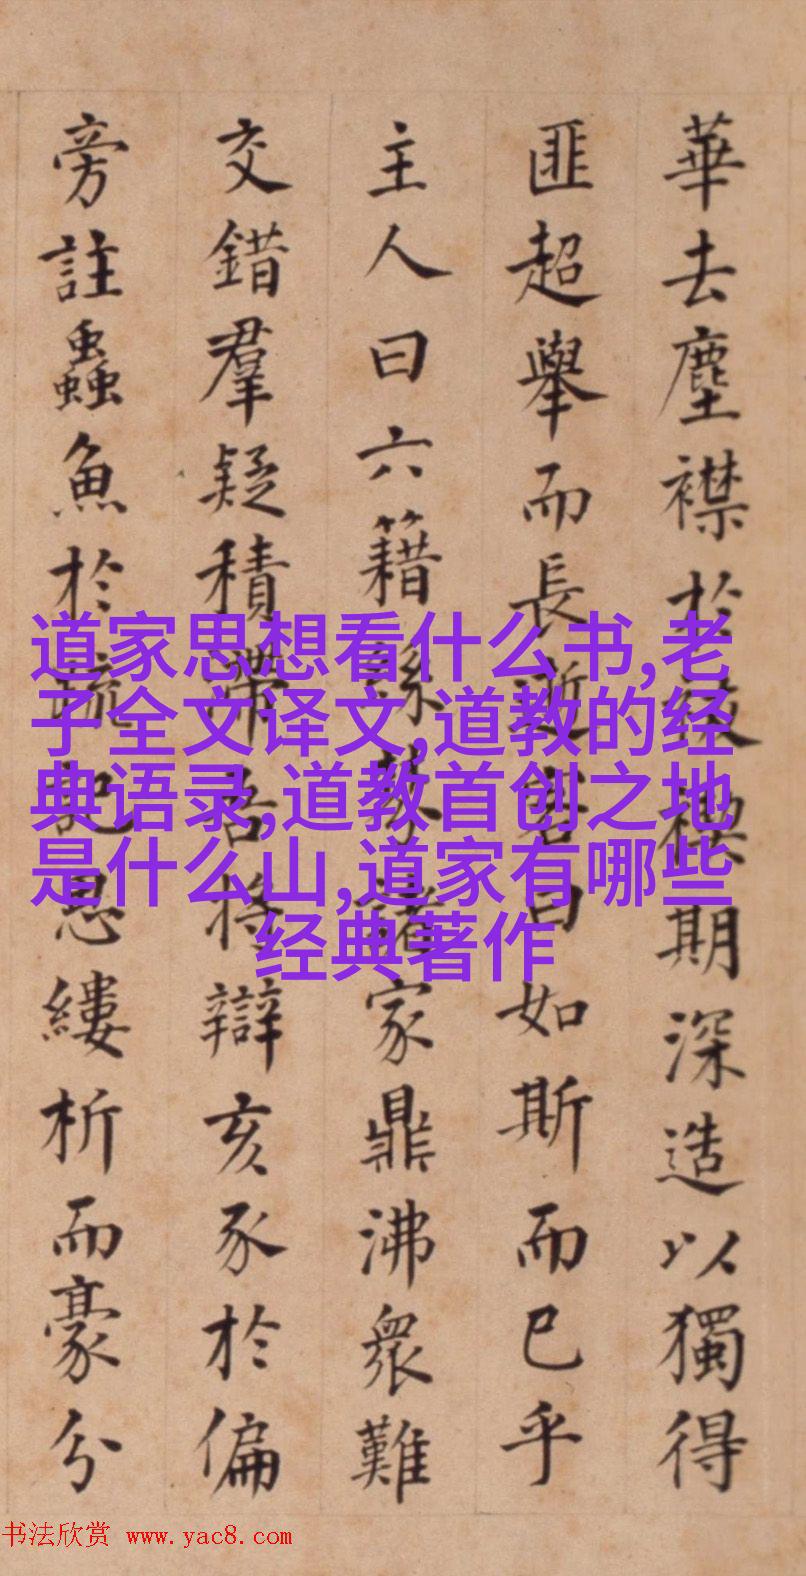 華去塵襟於綬襖期深造以獨得
匪超舉而長逝客曰如斯而已乎
主人曰六籍緐蕪諸家鼎沸衆難
交錯羣疑積滯吾將辯亥豕於偏
旁註蟲魚於疏記思縷析而豪分
道家思想看什么书,老
子全文译文,道教的经
典语录,道教首创之地
是什么山,道家有哪些
经典著作
书法欣赏 www.yac8.com